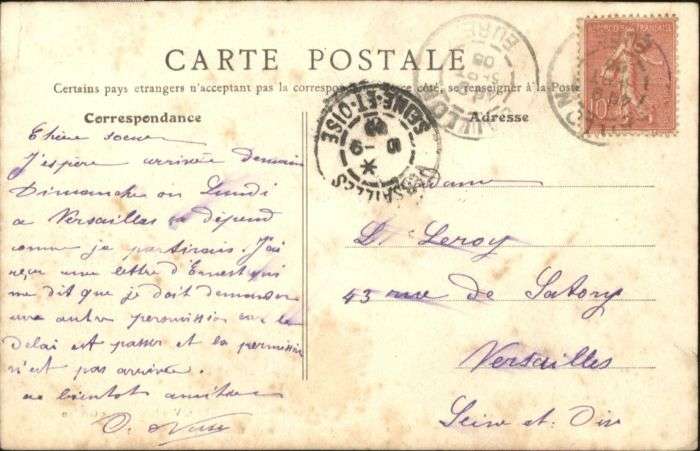 CARTE POSTALE
Certains pays etrangers n'acceptant pas la correspondance de ce côté, se renseigner à la Poste
Correspondance
Chère soeur
J'espère arrivée demain
Dimanche ou Lundi
a Versailles sa dépend
comme je partirais. J'ai
reçer une lettre d'Ernest qui
me dit que je doit demander
une autre peromission car le
Delai est passer et la permission
n'est pas arrivée.
a bientot amities
Adresse
Madame
L. Leroy
43 rue de Satory
Versailles
Seine et Oise
VERSAILLES
SEINE-ET-OISE
EURE
10